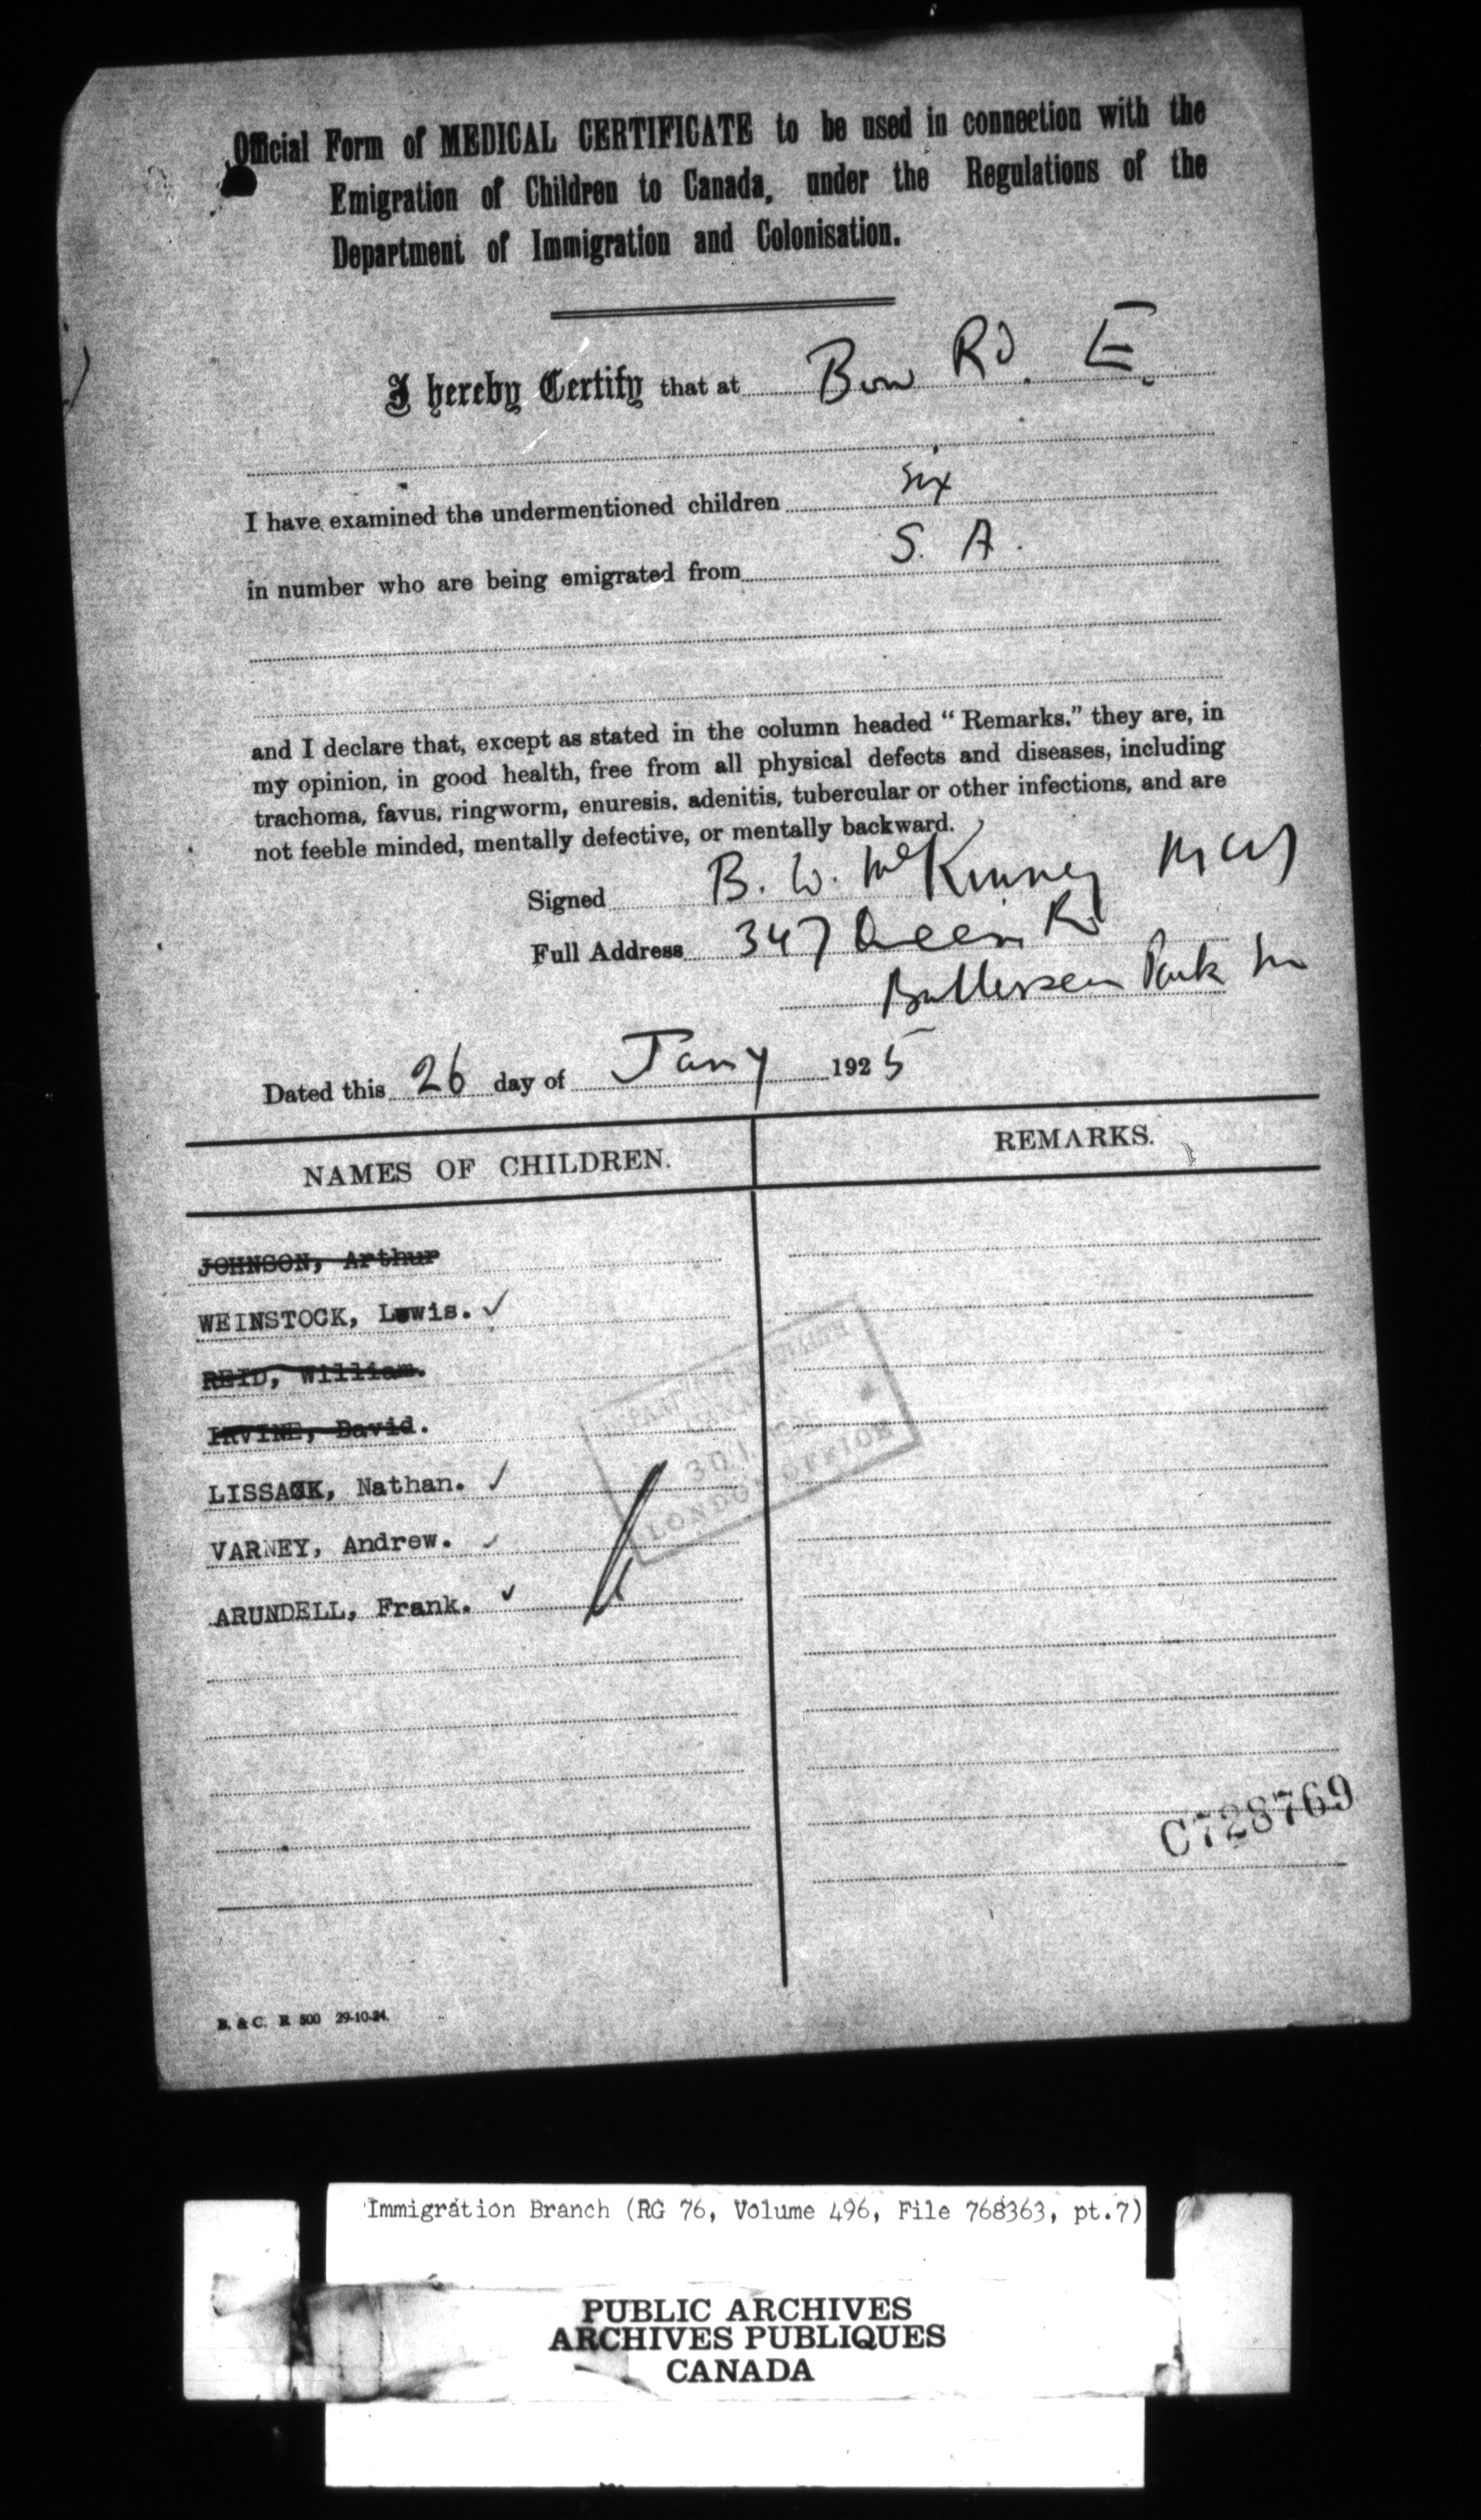 Official Form of MEDICAL CERTIFICATE to be used in connection with the
Emigration of Children to Canada, under the Regulations of the
Department of Immigration and Colonisation.
I hereby Certify that at Bow Rd. E.
I have examined the undermentioned children six
in number who are being emigrated from S. A.
and I declare that, except as stated in the column headed “Remarks.” they are, in
my opinion, in good health, free from all physical defects and diseases, including
trachoma, favus, ringworm, enuresis, adenitis, tubercular or other infections, and are
not feeble minded, mentally defective, or mentally backward.
Signed B. W. McKinney
Full Address 347 Queens Rd
Battersea Park
Dated this 26 day of Jany 1925
NAMES OF CHILDREN. REMARKS.
JOHNSON, Arthur
WEINSTOCK, Lewis. ✓
REID, William.
IRVINE, David.
LISSACK, Nathan. ✓
VARNEY, Andrew. ✓
ARUNDELL, Frank. ✓
LONDON OFFICE
C728769
B. & C. R 500 29-10-24.
Immigration Branch (RG 76, Volume 496, File 768363, pt.7)
PUBLIC ARCHIVES
ARCHIVES PUBLIQUES
CANADA